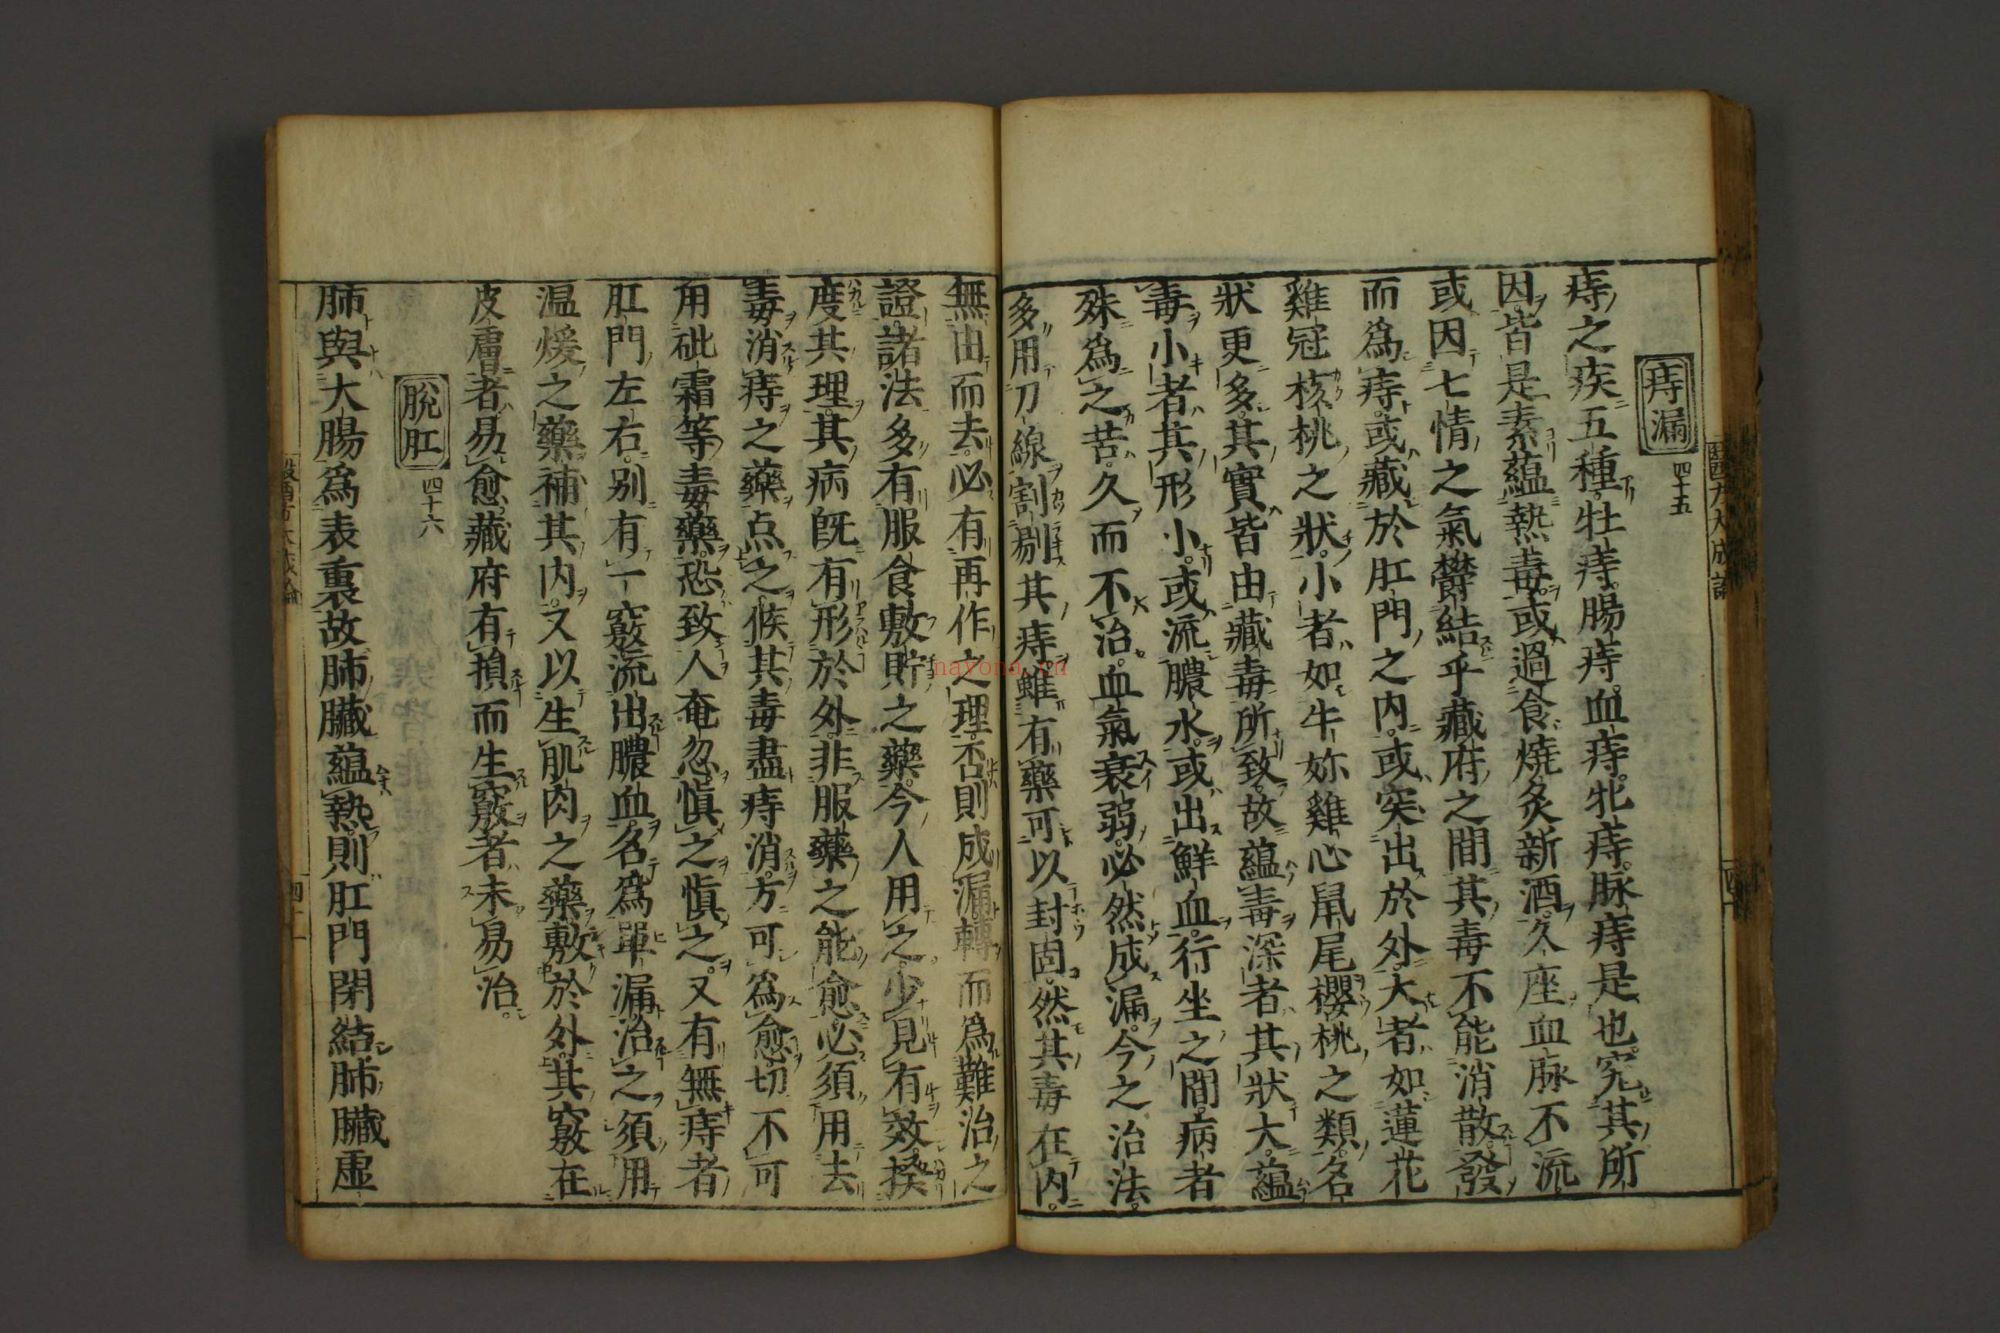 痔漏 四十五
痔之疾五種牡痔腸痔血痔牝痔脉痔是也究其所
因皆是素蘊熱毒或過食燒炙新酒久座血脉不流
或因七情之氣欝結乎藏府之間其毒不能消散發
而爲痔或藏於肛門之内或突出於外大者如蓮花
雞冠核桃之狀小者如牛妳雞心鼠尾櫻桃之類名
狀更多其實皆由藏毒所致故蘊毒深者其狀大蘊
毒小者其形小或流膿水或出鮮血行坐之間病者
殊爲之苦久而不治血氣衰弱必然成漏今之治法
多用刀線割剔其痔雖有藥可以封固然其毒在内
無由而去必有再作之理否則成漏轉而爲難治之
證諸法多有服食敷貯之藥今人用之少見有效揆
度其理其病既有形於外非服藥之能愈必須用去
毒消痔之藥点之候其毒盡痔消方可爲愈切不可
用砒霜等毒藥恐致人奄忽愼之愼之又有無痔者
肛門左右别有一竅流出膿血名爲單漏治之須用
温煖之藥補其内又以生肌肉之藥敷於外其竅在
皮膚者易愈藏府有損而生竅者未易治
脱肛 四十六
肺與大腸爲表裏故肺臟蘊熱則肛門閉結肺臟虚
nayona.cn